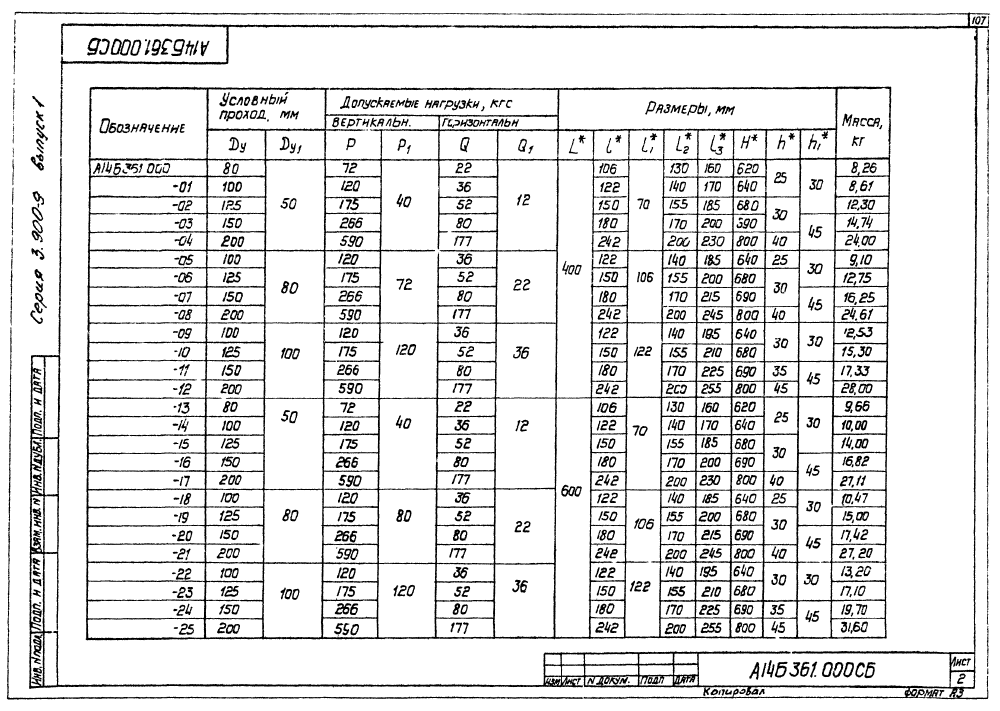 107
А14Б361.000СБ
Серия 3.900-9 выпуск 1
Обозначение | Условный проход, мм | Допускаемые нагрузки, кгс | Размеры, мм | Масса, кг
Вертикальн. | Горизонтальн
Dу | Dу₁ | P | P₁ | Q | Q₁ | L* | l* | l₁* | l₂* | l₃* | H* | h* | h₁*
А14Б361.000 | 80 | 50 | 72 | 40 | 22 | 12 | 400 | 106 | 70 | 130 | 160 | 620 | 25 | 30 | 8,26
-01 | 100 | 120 | 36 | 122 | 140 | 170 | 640 | 8,61
-02 | 125 | 175 | 52 | 150 | 155 | 185 | 680 | 30 | 12,30
-03 | 150 | 266 | 80 | 180 | 170 | 200 | 690 | 45 | 14,74
-04 | 200 | 590 | 177 | 242 | 200 | 230 | 800 | 40 | 24,00
-05 | 100 | 80 | 120 | 72 | 36 | 22 | 122 | 106 | 140 | 185 | 640 | 25 | 30 | 9,10
-06 | 125 | 175 | 52 | 150 | 155 | 200 | 680 | 30 | 12,75
-07 | 150 | 266 | 80 | 180 | 170 | 215 | 690 | 45 | 16,25
-08 | 200 | 590 | 177 | 242 | 200 | 245 | 800 | 40 | 24,61
-09 | 100 | 100 | 120 | 120 | 36 | 36 | 122 | 122 | 140 | 195 | 640 | 30 | 30 | 12,53
-10 | 125 | 175 | 52 | 150 | 155 | 210 | 680 | 15,30
-11 | 150 | 266 | 80 | 180 | 170 | 225 | 690 | 35 | 45 | 17,33
-12 | 200 | 590 | 177 | 242 | 200 | 255 | 800 | 45 | 28,00
-13 | 80 | 50 | 72 | 40 | 22 | 12 | 600 | 106 | 70 | 130 | 160 | 620 | 25 | 30 | 9,66
-14 | 100 | 120 | 36 | 122 | 140 | 170 | 640 | 10,00
-15 | 125 | 175 | 52 | 150 | 155 | 185 | 680 | 30 | 14,00
-16 | 150 | 266 | 80 | 180 | 170 | 200 | 690 | 45 | 16,82
-17 | 200 | 590 | 177 | 242 | 200 | 230 | 800 | 40 | 27,11
-18 | 100 | 80 | 120 | 80 | 36 | 22 | 122 | 106 | 140 | 185 | 640 | 25 | 30 | 10,47
-19 | 125 | 175 | 52 | 150 | 155 | 200 | 680 | 30 | 15,00
-20 | 150 | 266 | 80 | 180 | 170 | 215 | 690 | 45 | 17,42
-21 | 200 | 590 | 177 | 242 | 200 | 245 | 800 | 40 | 27,20
-22 | 100 | 100 | 120 | 120 | 36 | 36 | 122 | 122 | 140 | 195 | 640 | 30 | 30 | 13,20
-23 | 125 | 175 | 52 | 150 | 155 | 210 | 680 | 17,10
-24 | 150 | 266 | 80 | 180 | 170 | 225 | 690 | 35 | 45 | 19,70
-25 | 200 | 590 | 177 | 242 | 200 | 255 | 800 | 45 | 31,60
Инв. № подл. | Подп. и дата | Взам. инв. № | Инв. № дубл. | Подп. и дата
А14Б361.000СБ
Лист
2
Изм | Лист | N докум. | Подп | Дата
Копировал
Формат А3